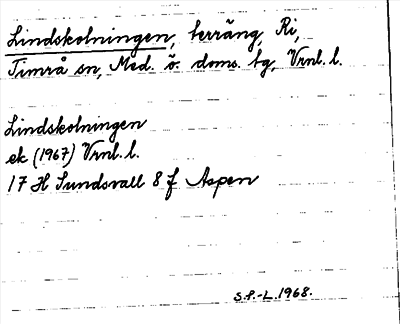 Lindskolningen, terräng, Ri,
Timrå sn, Med. ö. doms. tg, Vrnl. l.
Lindskolningen
ek (1967) Vrnl. l.
17 H Sundsvall 8 f Aspen
S.P.-L. 1968.